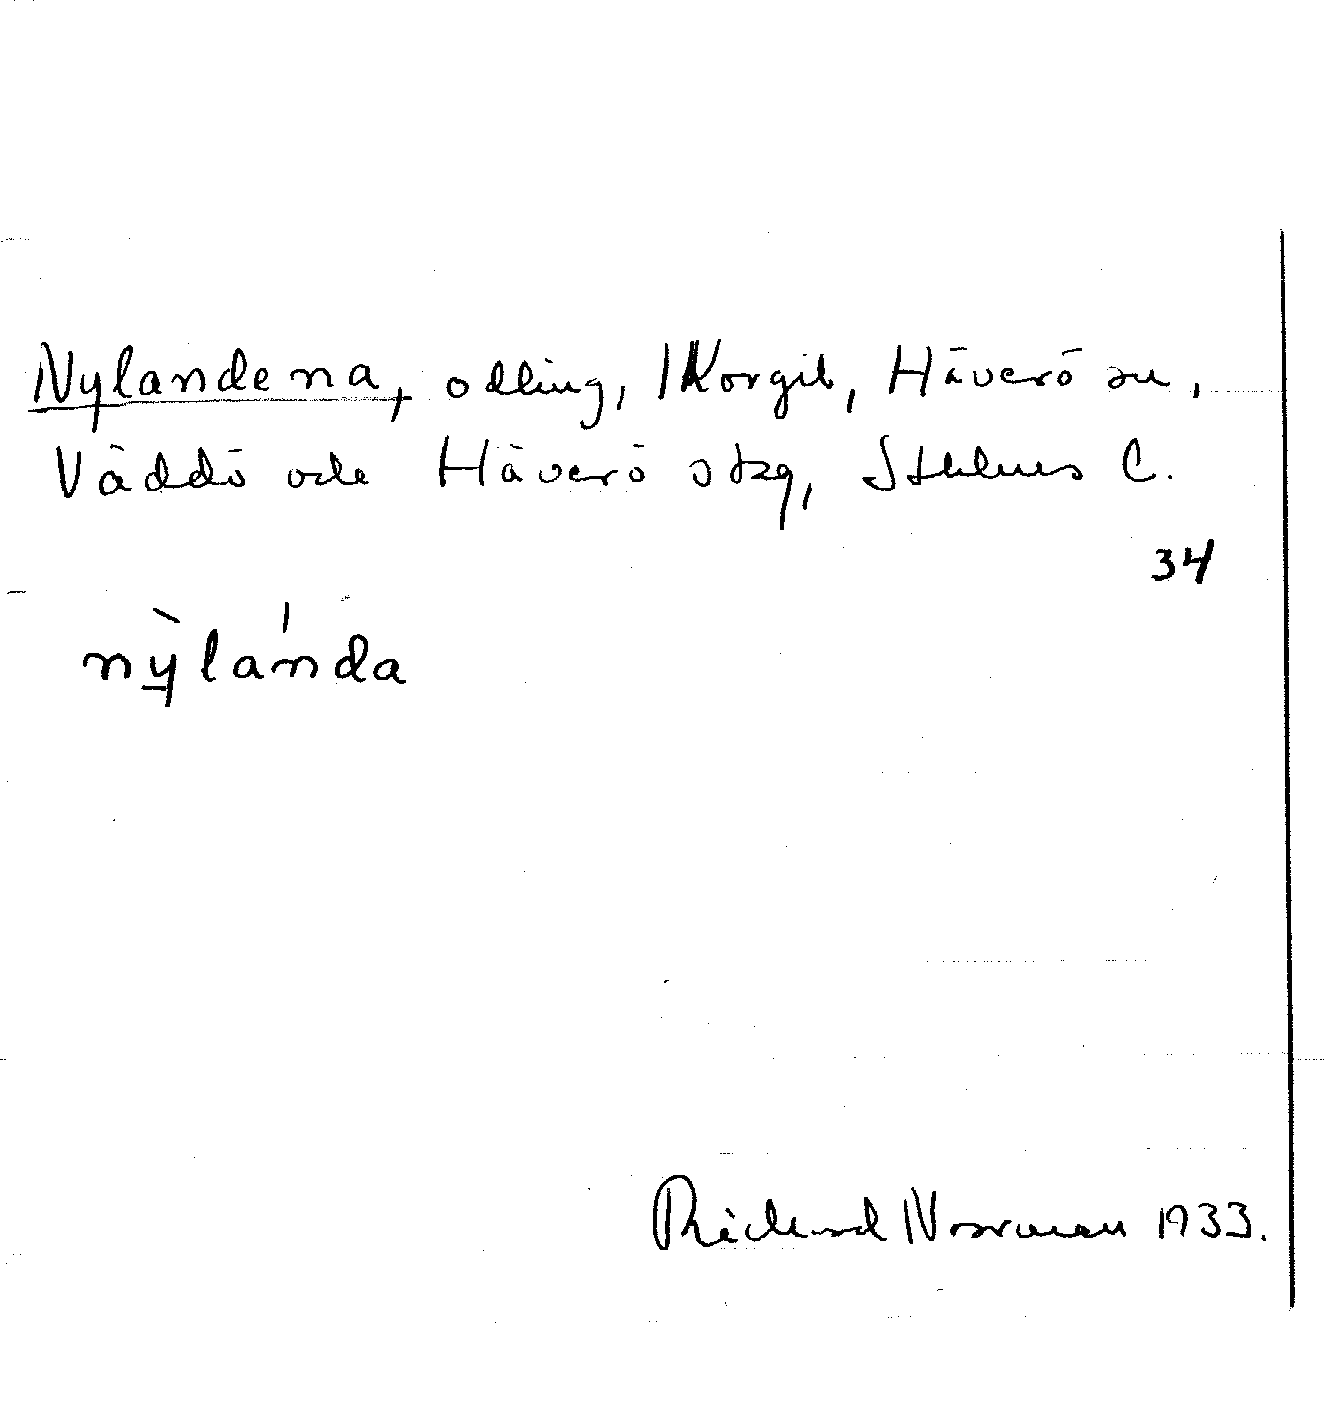 Nylandena, odling, Korgil, Häverö sn,
Väddö och Häverö skg, Sthlms C.
34
nỳlánda
Richard Norrman 1933.